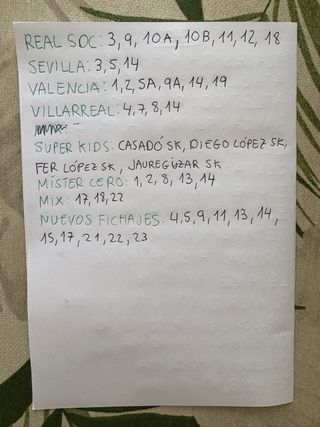 REAL SOC: 3, 9, 10A, 10B, 11, 12, 18
SEVILLA: 3, 5, 14
VALENCIA: 1, 2, 5A, 9A, 14, 19
VILLARREAL: 4, 7, 8, 14
SUPER KIDS: CASADÓ SK, DIEGO LÓPEZ SK,
FER LÓPEZ SK, JAUREGÜZAR SK
MÍSTER CERO: 1, 2, 8, 13, 14
MIX: 17, 18, 22
NUEVOS FICHAJES: 4, 5, 9, 11, 13, 14,
15, 17, 21, 22, 23